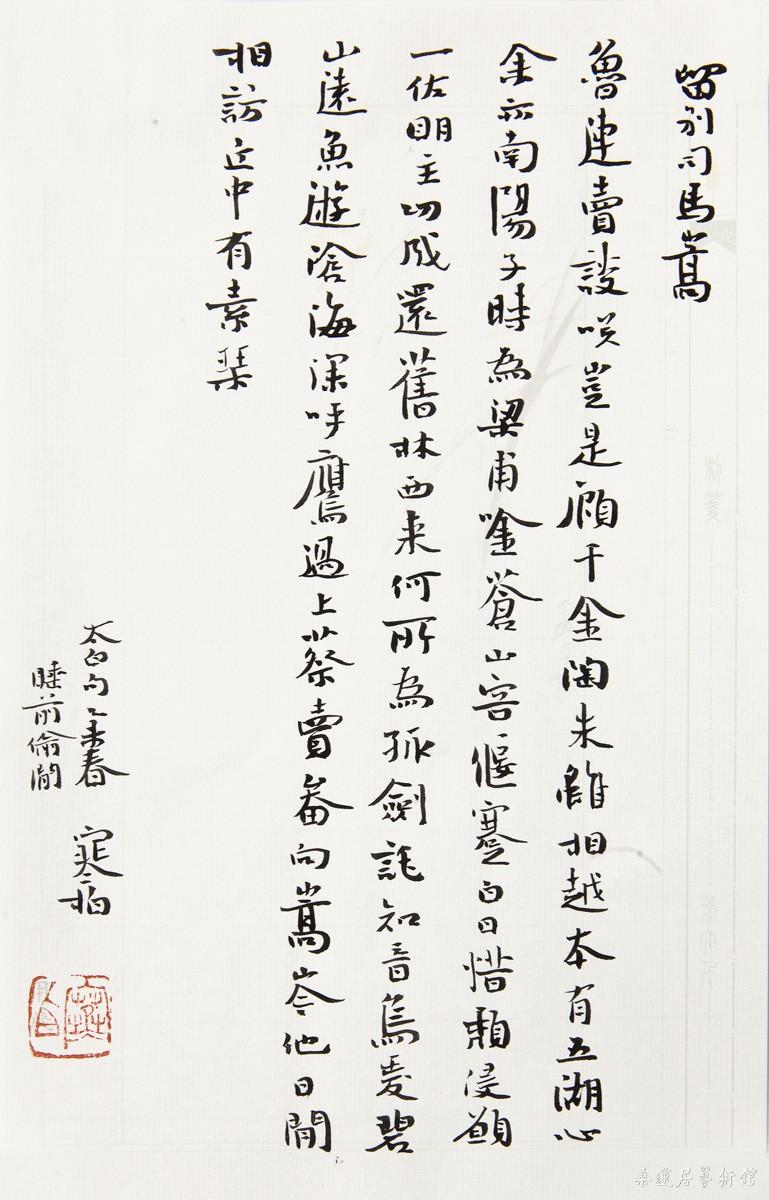 留別司馬嵩
魯連賣談咲豈是顧千金陶朱雖相越本有五湖心
余亦南陽子時為梁甫唫蒼山容偃蹇白日惜頹侵願
一佐明主功成還舊林西来何所為孤劍託知音鳥愛碧
山遠魚遊滄海深呼鷹過上蔡賣畚向嵩岑他日閒
相訪丘中有素琹
太白句乙未春
睡前偷閒
寒柏
桑蓮居藝術館